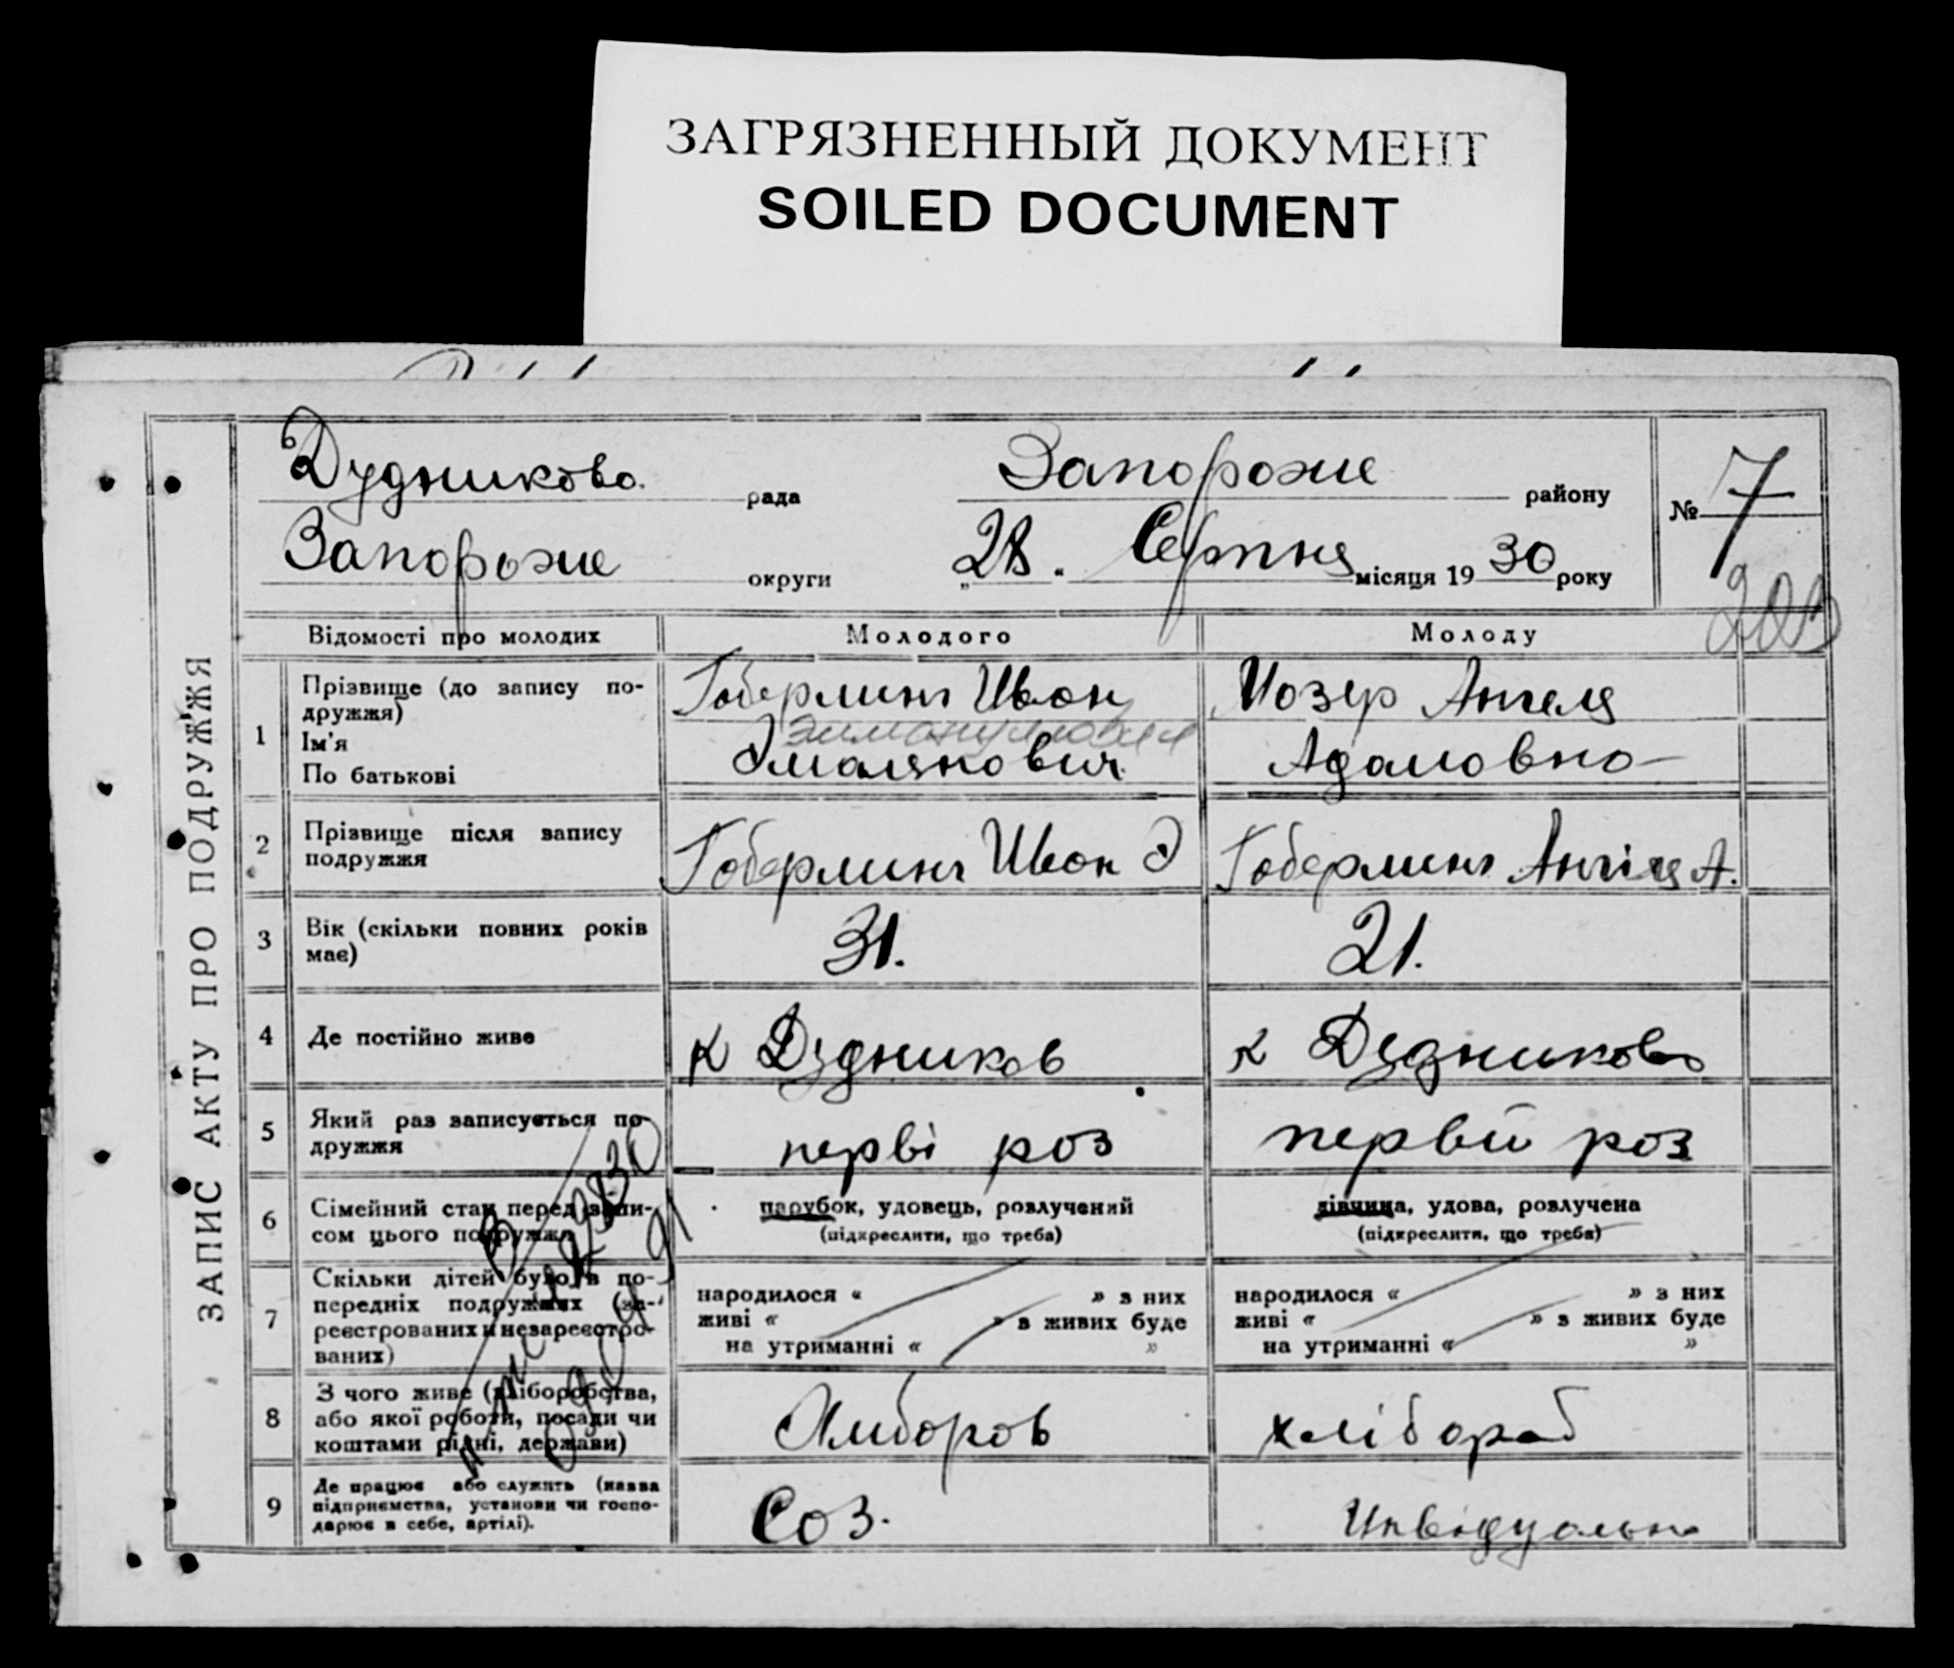 ЗАГРЯЗНЕННЫЙ ДОКУМЕНТ
SOILED DOCUMENT
ЗАПИС АКТУ ПРО ПОДРУЖ'ЖЯ
Дудниково рада Запороже району № 7
Запороже округи „28" Серпня місяця 1930 року
203
Відомості про молодих Молодого Молоду
1 Прізвище (до запису по-
дружжя)
Ім'я
По батькові
Гоберлинг Ивон
Эммануилович
Эмолянович
Мозер Ангеля
Адамовно
2 Прізвище після запису
подружжя
Гоберлинг Ивон Э
Гоберлинг Ангіля А.
3 Вік (скільки повних років
має)
31.
21.
4 Де постійно живе
к Дудников
к Дудниково
5 Який раз записується по-
дружжя
перві роз
первй роз
6 Сімейний стан перед запи-
сом цього подружжя
парубок, удовець, розлучений
(підкреслити, що треба)
дівчина, удова, розлучена
(підкреслити, що треба)
7 Скільки дітей було в по-
передніх подружжях (за-
реєстрованих и незареєстро-
ваних)
народилося « » з них
живі « » з живих буде
на утриманні « »
народилося « » з них
живі « » з живих буде
на утриманні « »
8 З чого живе (хліборобства,
або якої роботи, посади чи
коштами рідні, держави)
Хлиборов
хлібороб
9 Де працює або служить (назва
підприємства, установи чи госпо-
дарює в себе, артілі).
Соз.
Инвідуольно